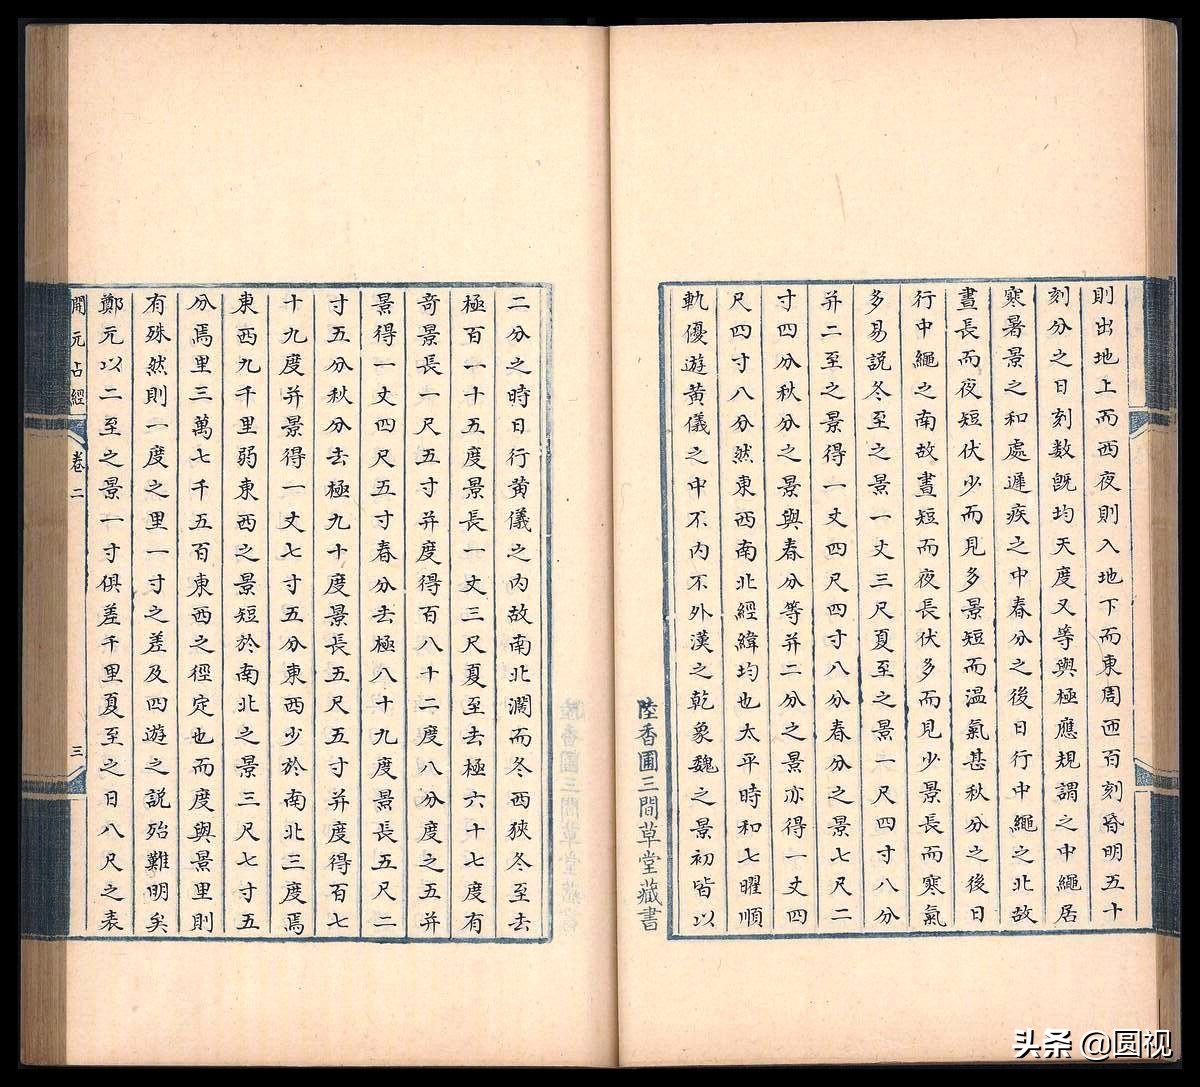 則出地上而西夜則入地下而東周迊百刻昏明五十
刻分之日刻数旣均天度又等與極應規謂之中繩居
寒暑景之和處遲疾之中春分之後日行中繩之北故
晝長而夜短伏少而見多景短而温氣甚秋分之後日
行中繩之南故晝短而夜長伏多而見少景長而寒氣
多易説冬至之景一丈三尺夏至之景一尺四寸八分
并二至之景得一丈四尺四寸八分春分之景七尺二
寸四分秋分之景與春分等并二分之景亦得一丈四
尺四寸八分然東西南北經緯均也太平時和七曜順
軌優遊黄儀之中不内不外漢之乾象魏之景初皆以
陸香圃三間草堂藏書
二分之時日行黄儀之内故南北濶而冬西狹冬至去
極百一十五度景長一丈三尺夏至去極六十七度有
竒景長一尺五寸并度得百八十二度八分度之五并
景得一丈四尺五寸春分去極八十九度景長五尺二
寸五分秋分去極九十度景長五尺五寸并度得百七
十九度并景得一丈七寸五分東西少於南北三度焉
東西九千里弱東西之景短於南北之景三尺七寸五
分焉里三萬七千五百東西之徑定也而度與景里則
有殊然則一度之里一寸之差及四遊之説殆難明矣
鄭元以二至之景一寸俱差千里夏至之日八尺之表
開元占經 卷二 三
头条 @圆视